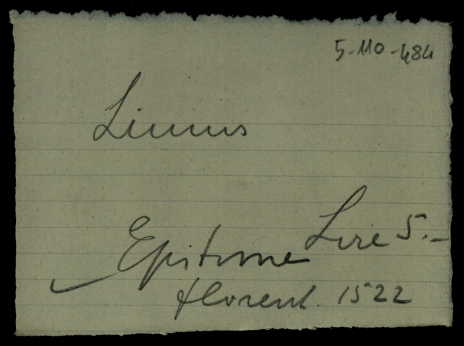 5-110-484
Livius
Lire 5.-
Epitome
florent. 1522